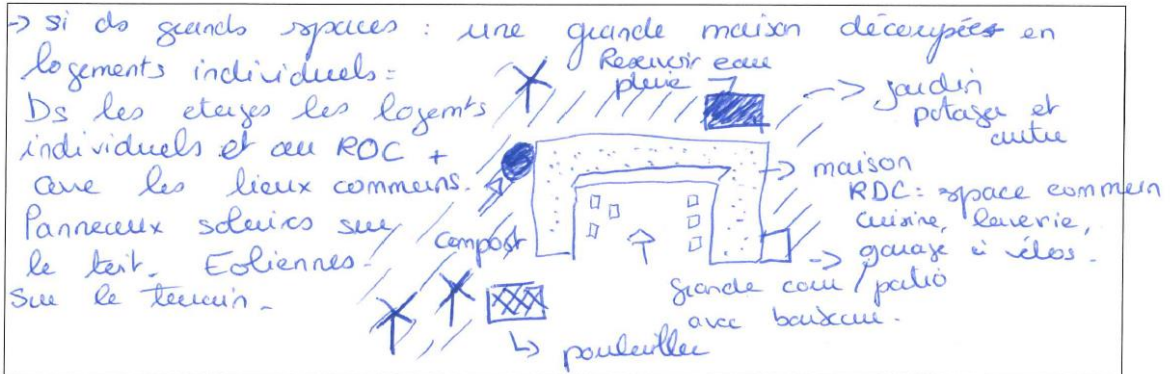 -> si ds grands espaces : une grande maison découpées en
logements individuels :
Ds les etages les logemts
individuels et au RDC +
cave les lieux communs.
Panneaux solaires sur
le toit. Eoliennes
sur le terrain.
Reservoir eau
pluie
-> jardin
potager et
autre
-> maison
RDC : espace commun
cuisine, laverie,
-> garage à vélos.
compost
grande cour / patio
avec
-> poulailler